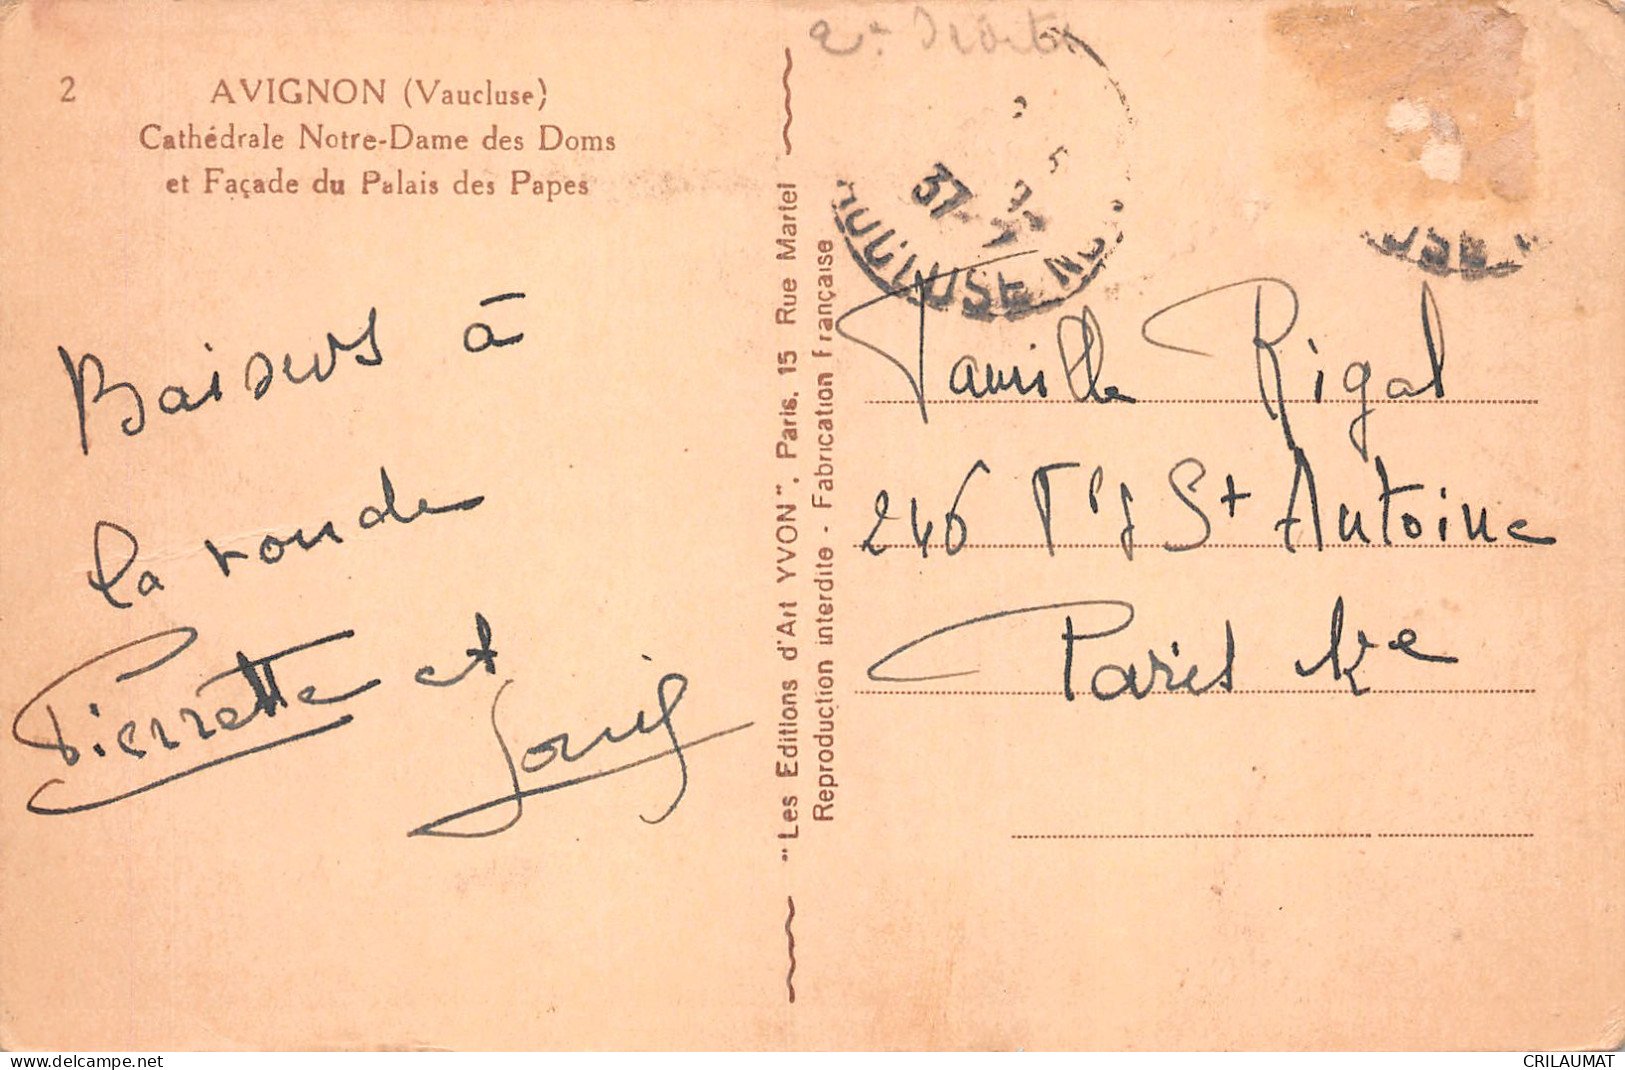 2
AVIGNON (Vaucluse)
Cathédrale Notre-Dame des Doms
et Façade du Palais des Papes
Baisers à
la ronde
Pierrette et
Louis
"Les Editions d'Art YVON", Paris, 15 Rue Martel
Reproduction interdite - Fabrication Française
37
Famille Rigal
246 Fg St Antoine
Paris
www.delcampe.net
CRILAUMAT